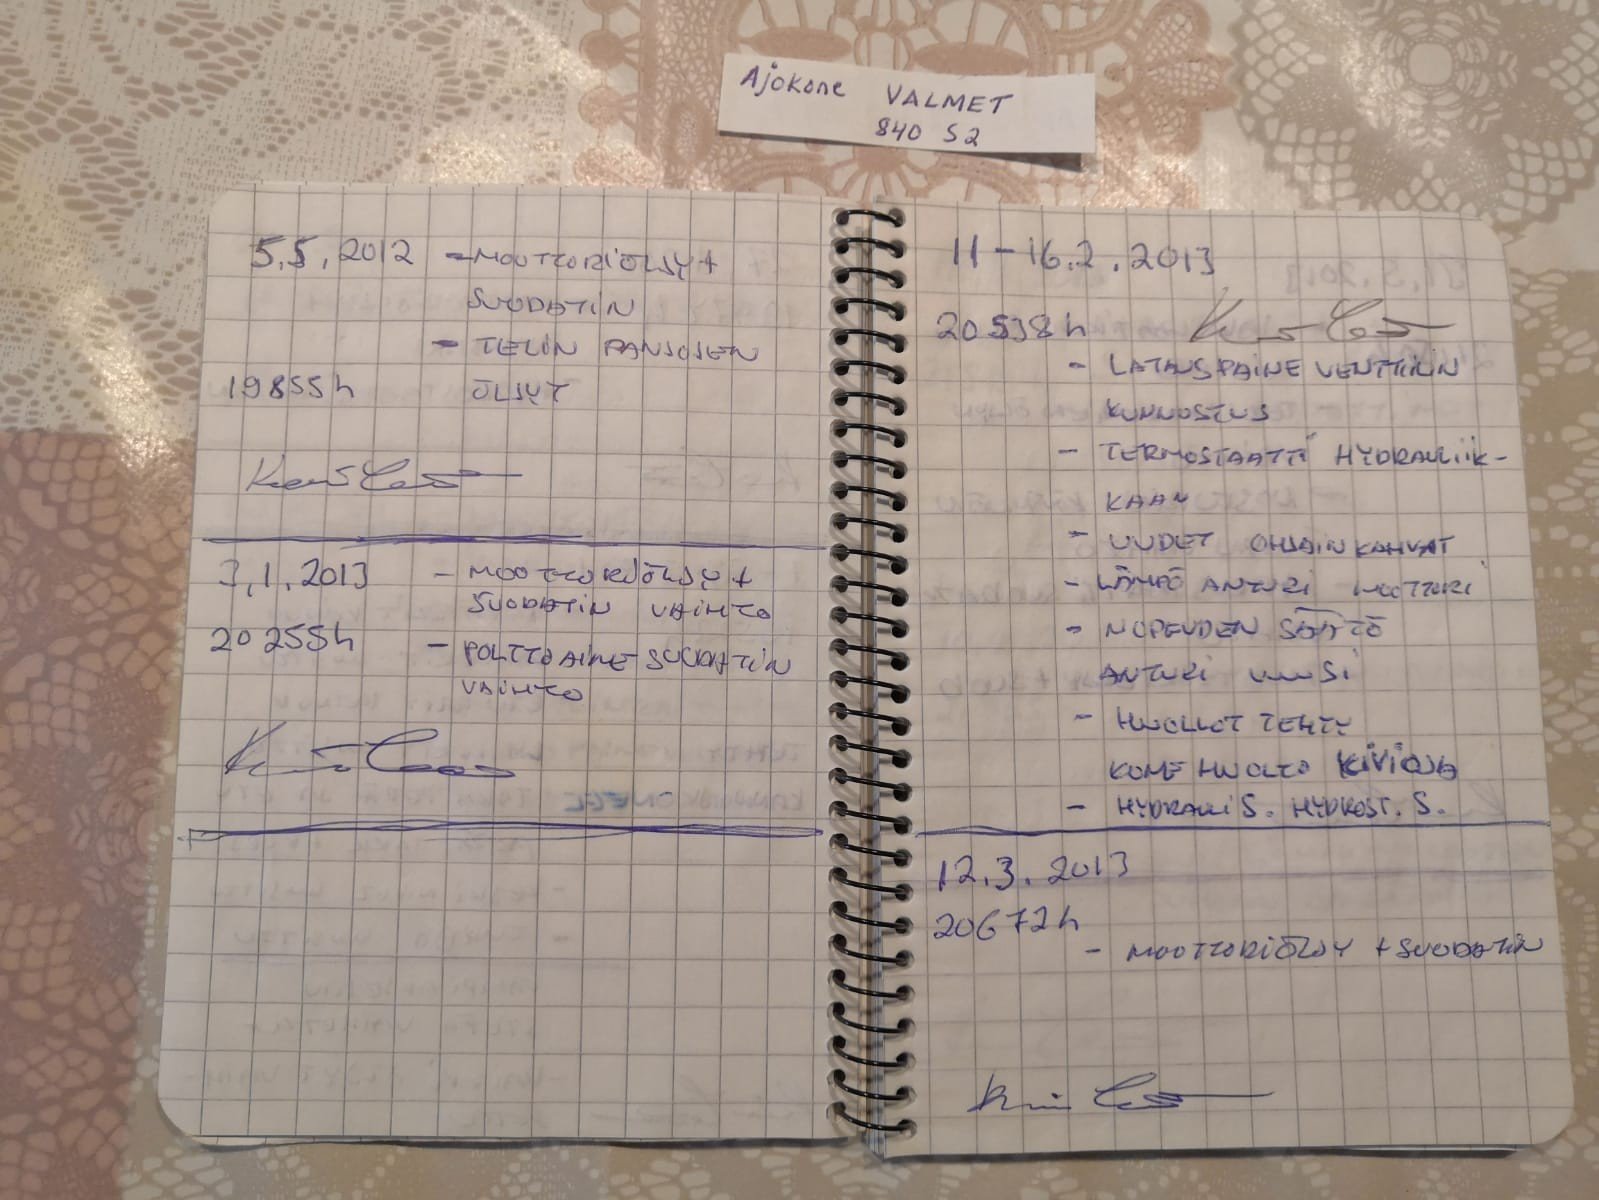 Ajokone VALMET
840 S2
5.5.2012 - MOOTTORIÖLJYT
SUODATIN
- TELIN PANSOJEN
19855h ÖLJYT
3.1.2013 - MOOTTORIÖLJYT
SUODATIN VAIHTO
20255h - POLTTOAINE SUODATIN
VAIHTO
11-16.2.2013
20538h
- LATAUSPAINE VENTTIILIN
KUNNOSTUS
- TERMOSTAATTI HYDRAULIIK-
KAAN
- UUDET OHJAINKAHVAT
- LÄMPÖ ANTURI MOOTTORI
- NOPEUDEN SÄÄTÖ
ANTURI UUSI
- HUOLLOT TEHTY
KONE HUOLTO KIVIOJA
- HYDRAULI S. HYDROST. S.
12.3.2013
20672h
- MOOTTORIÖLJY + SUODATIN